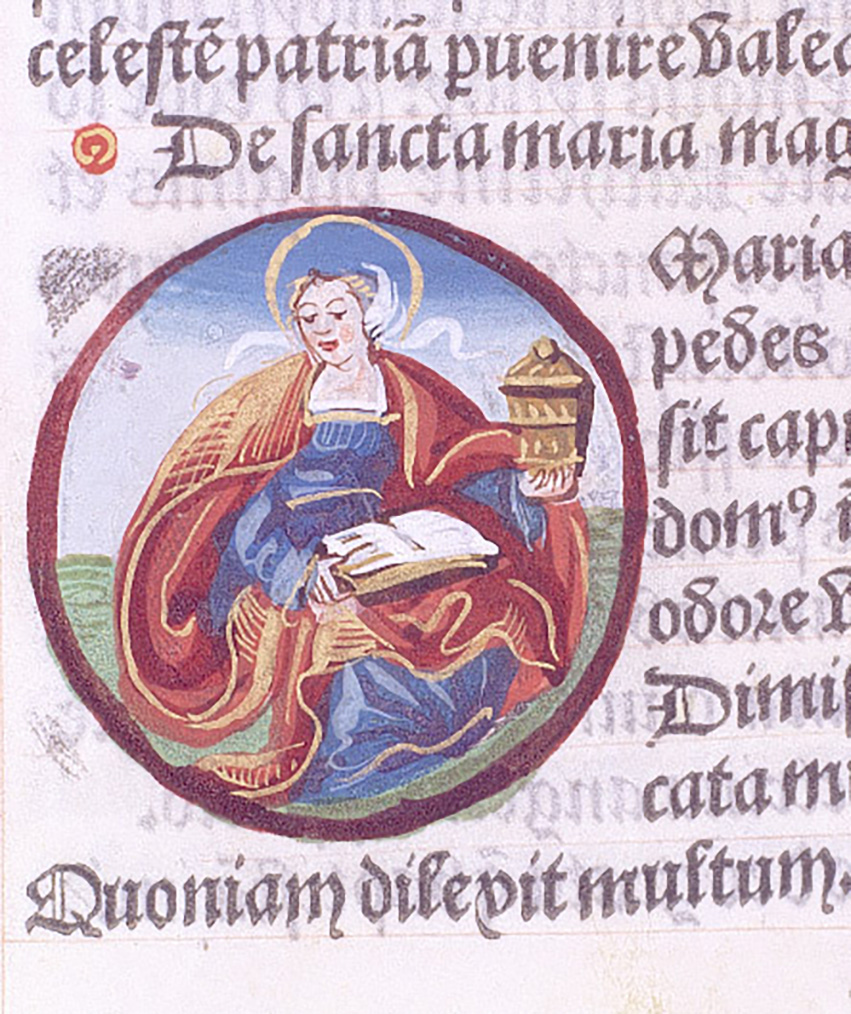 celestē patriā ꝑuenire valea
De sancta maria mag
Maria
pedes
sit capi
domꝰ i
odore v
Dimis
cata mu
Quoniam dilexit multum.